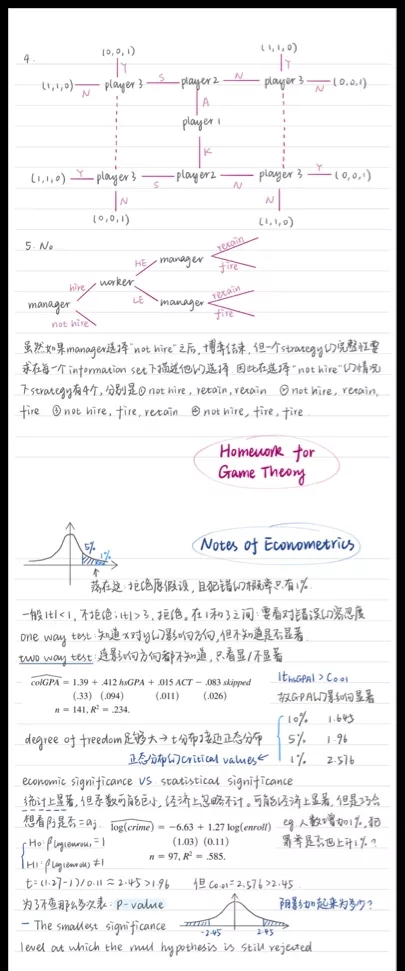 4.
(0,0,1) (1,1,0)
Y Y
(1,1,0) N player 3 S player 2 N player 3 N (0,0,1)
A
player 1
K
(1,1,0) Y player 3 S player 2 N player 3 Y (0,0,1)
N N
(0,0,1) (1,1,0)
5. No
retain
HE manager
fire
hire worker
manager
retain
LE manager
not hire
fire
虽然如果manager选择“not hire”之后,博弈结束,但一个strategy的完整性要
求在每一个information set下描述他的选择.因此在选择“not hire”的情况
下strategy有4个,分别是①not hire, retain, retain ②not hire, retain,
fire ③not hire, fire, retain ④not hire, fire, fire.
Homework for
Game Theory
Notes of Econometrics
5%
1%
落在这:拒绝原假设,且犯错的概率只有1%.
一般|t|<1,不拒绝;|t|>3,拒绝。在1和3之间:要看对错误的容忍度
one way test:知道x对y的影响方向,但不知道是否显著.
two way test:连影响方向都不知道,只看显/不显著
colGPA = 1.39 + .412 hsGPA + .015 ACT − .083 skipped
(.33) (.094) (.011) (.026)
n = 141, R² = .234.
|thsGPA| > C0.01
故GPA的影响显著
10% 1.645
5% 1.96
1% 2.576
degree of freedom足够大→t分布接近正态分布
正态分布的critical values
economic significance VS statistical significance
统计上显著,但系数可能巨小,经济上忽略不计。可能经济上显著,但是
想看βj是否=aj.
log(crime) = −6.63 + 1.27 log(enroll)
(1.03) (0.11)
n = 97, R² = .585.
eg.人数增加1%,犯
罪率是否也上升1%?
H0: βlog(enroll) = 1
H1: βlog(enroll) ≠ 1
t = (1.27-1)/0.11 ≈ 2.45 > 1.96 但C0.01=2.576>2.45.
为了不查那么多次表: P-value
阴影加起来为多少?
-2.45 2.45
— The smallest significance
level at which the null hypothesis is still rejected